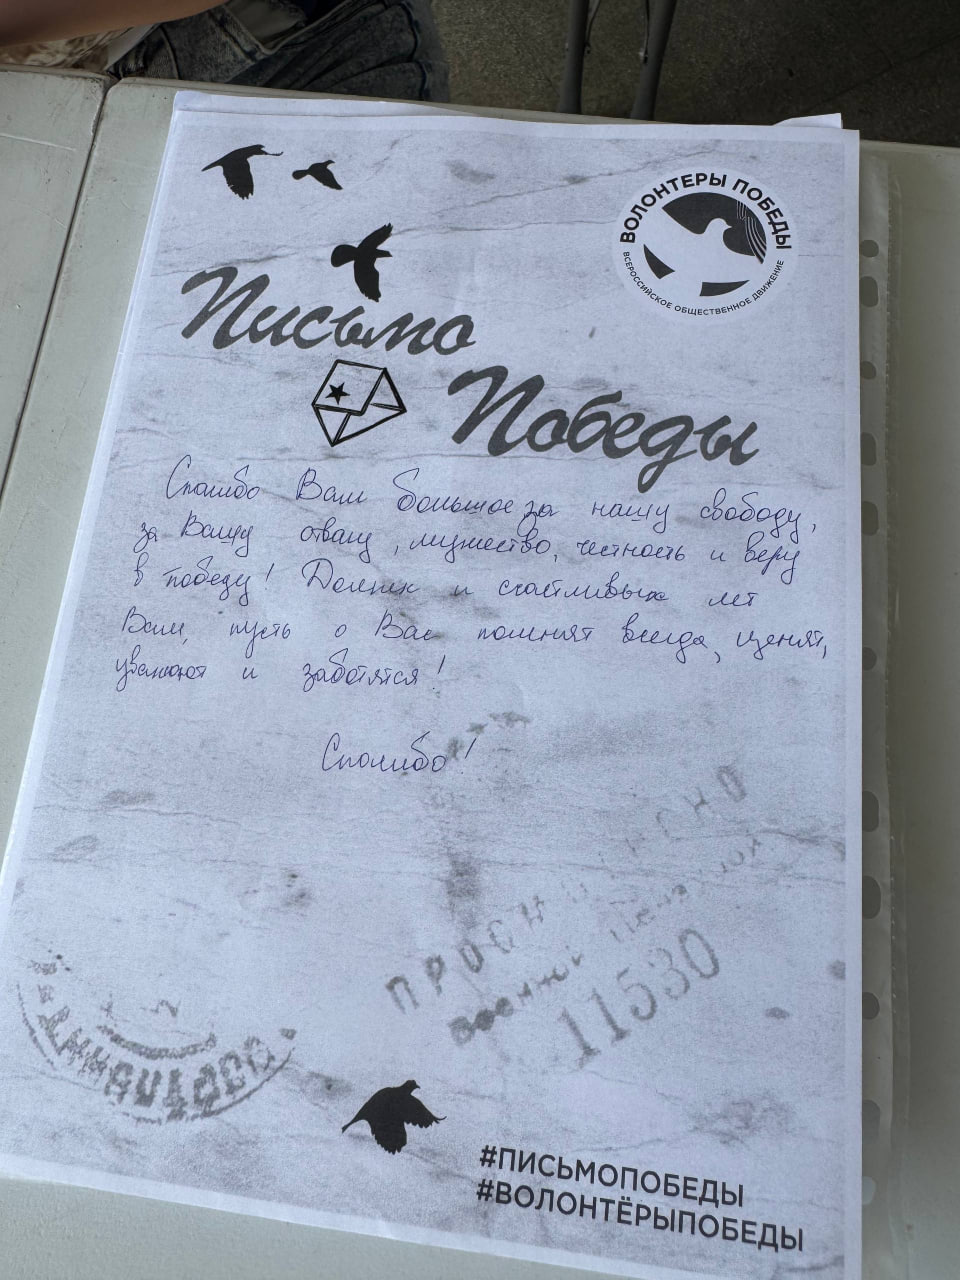 ВОЛОНТЕРЫ ПОБЕДЫ
ВСЕРОССИЙСКОЕ ОБЩЕСТВЕННОЕ ДВИЖЕНИЕ
Письмо
Победы
Спасибо Вам большое за нашу свободу,
за Вашу отвагу, мужество, честность и веру
в победу! Долгих и счастливых лет
Вам, пусть о Вас помнят всегда, ценят,
уважают и заботятся!
Спасибо!
ПРОСМОТРЕНО
Военной Цензурой
11530
#ПИСЬМОПОБЕДЫ
#ВОЛОНТЁРЫПОБЕДЫ